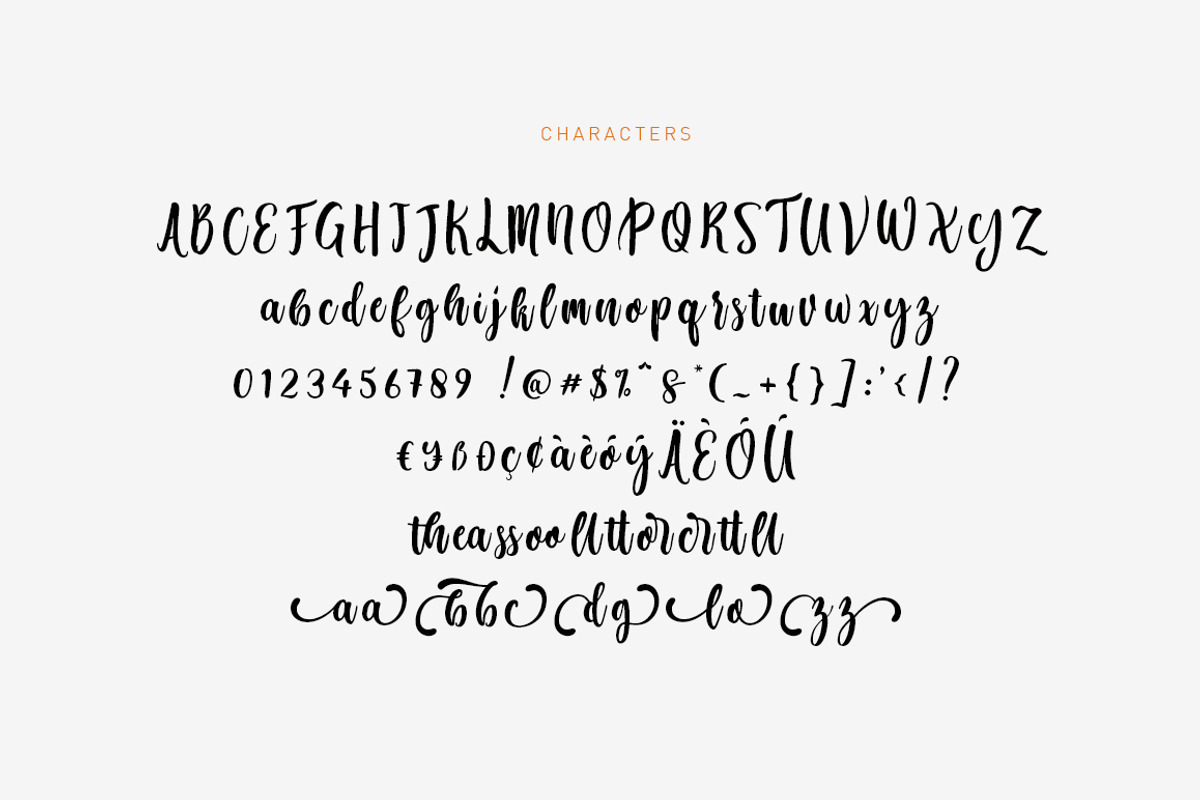 CHARACTERS
ABCEFGHIJKLMNOPQRSTUVWXYZ
abcdefghijklmnopqrstuvwxyz
0123456789 !@#$%^&*(_+{}]:'</?
€¥ßÐç¢àèóýÄÈÓÚ
theassoollttorcrttll
aa bbc dg lo zz